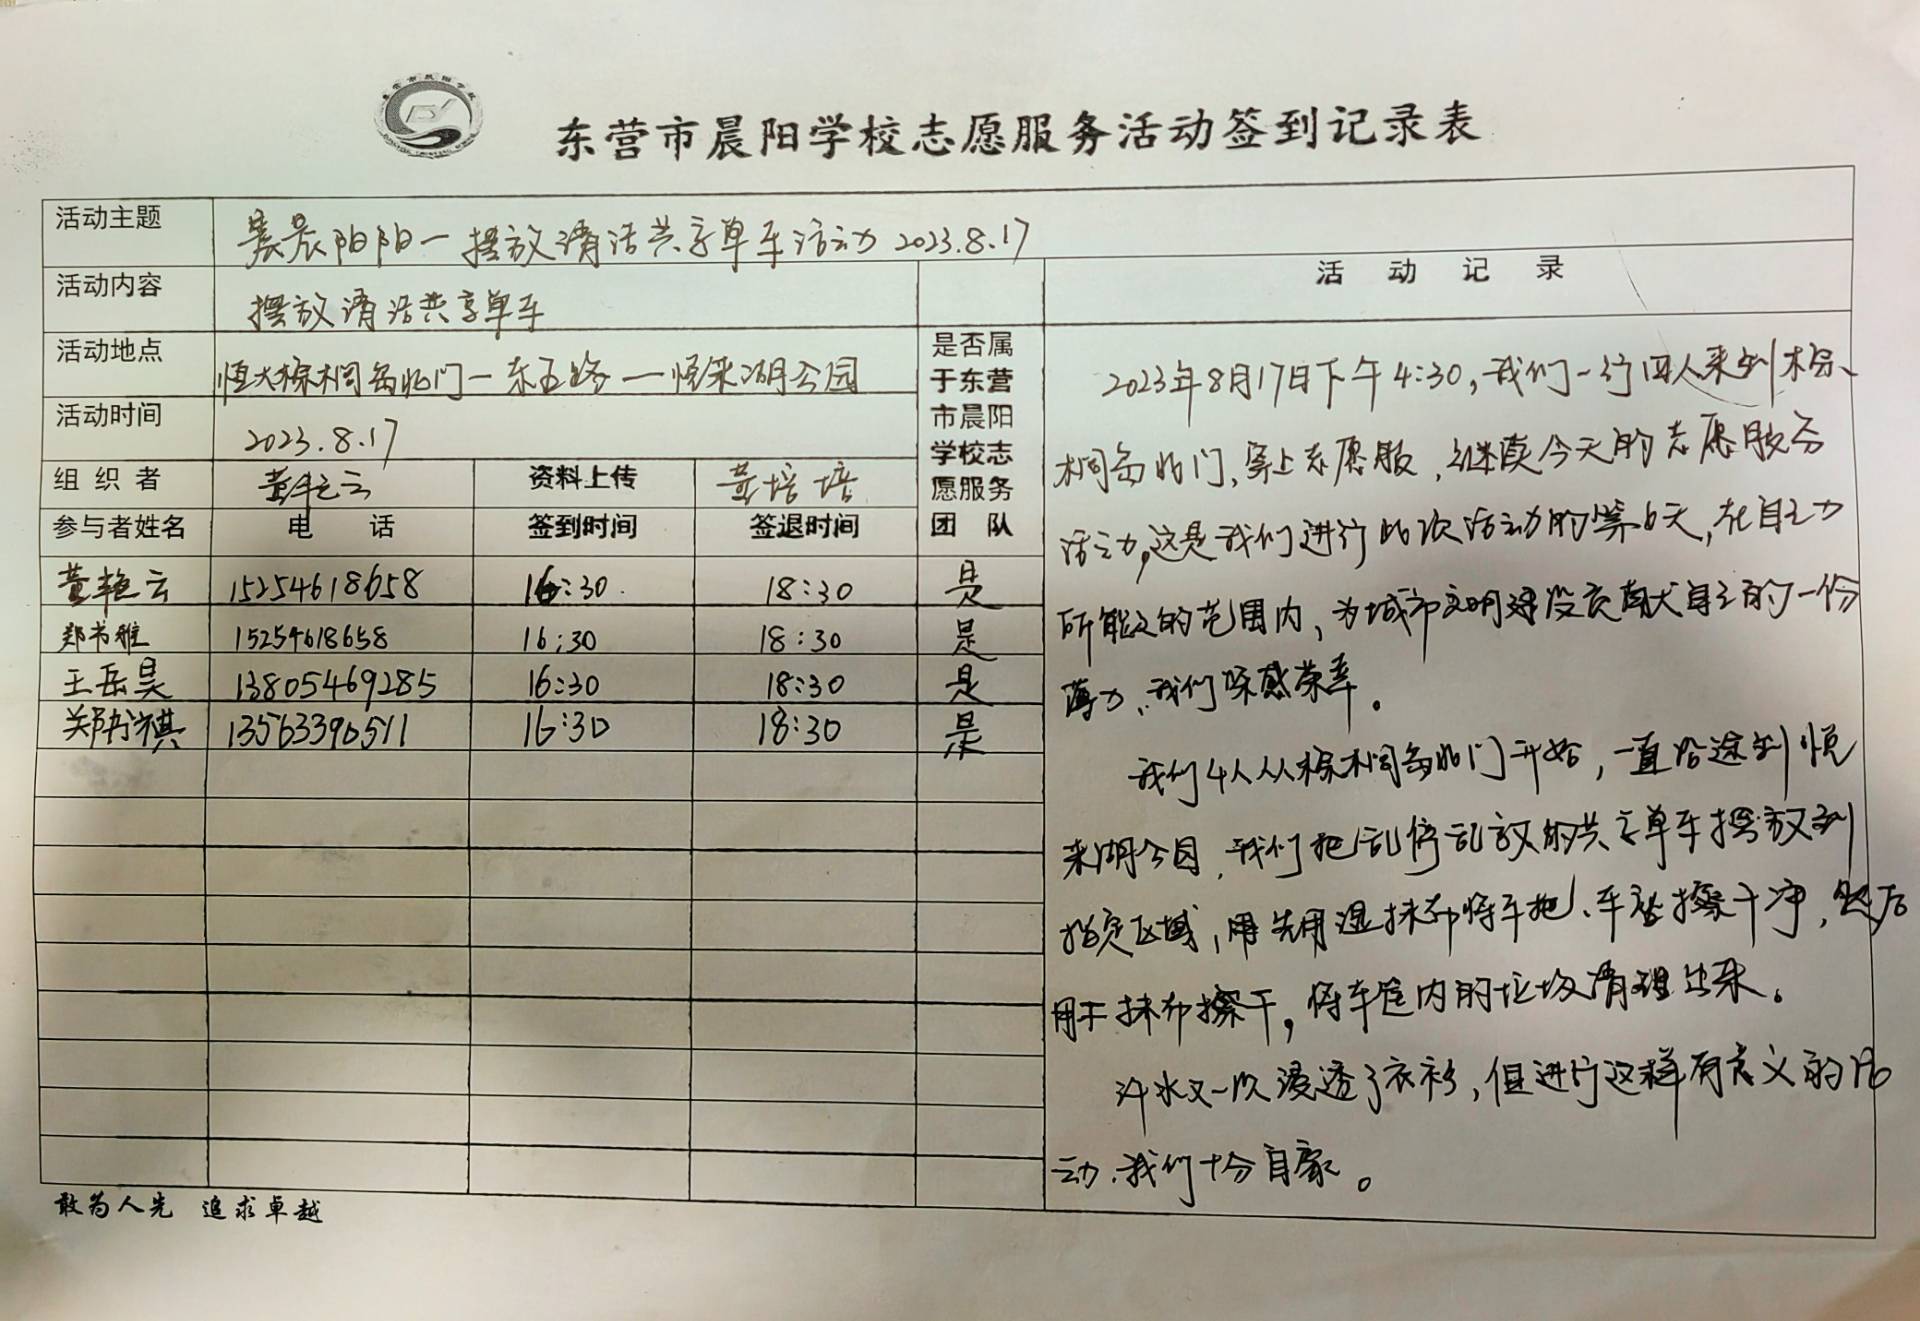 东营市晨阳学校志愿服务活动签到记录表
活动主题 晨晨阳阳一摆放清洁共享单车活动 2023.8.17
活动内容 摆放清洁共享单车
活动地点 恒大棕榈岛北门一东五路一悦来湖公园
活动时间 2023.8.17
组织者 董艳云 资料上传 黄培培
参与者姓名 电话 签到时间 签退时间 是否属于东营市晨阳学校志愿服务团队
董艳云 15254618658 16:30 18:30 是
郑书雅 15254618658 16:30 18:30 是
王岳昊 13805469285 16:30 18:30 是
郑书祺 13563390511 16:30 18:30 是
活动记录
2023年8月17日下午4:30,我们一行四人来到棕
榈岛北门,穿上志愿服,继续今天的志愿服务
活动,这是我们进行此次活动的第6天,在自己力
所能及的范围内,为城市文明建设贡献自己的一份
薄力,我们深感荣幸。
我们4人从棕榈岛北门开始,一直沿途到悦
来湖公园,我们把乱停乱放的共享单车摆放到
指定区域,用先用湿抹布将车把、车座擦干净,然后
用干抹布擦干,将车筐内的垃圾清理出来。
汗水又一次浸透了衣衫,但进行这样有意义的活
动,我们十分自豪。
敢为人先 追求卓越